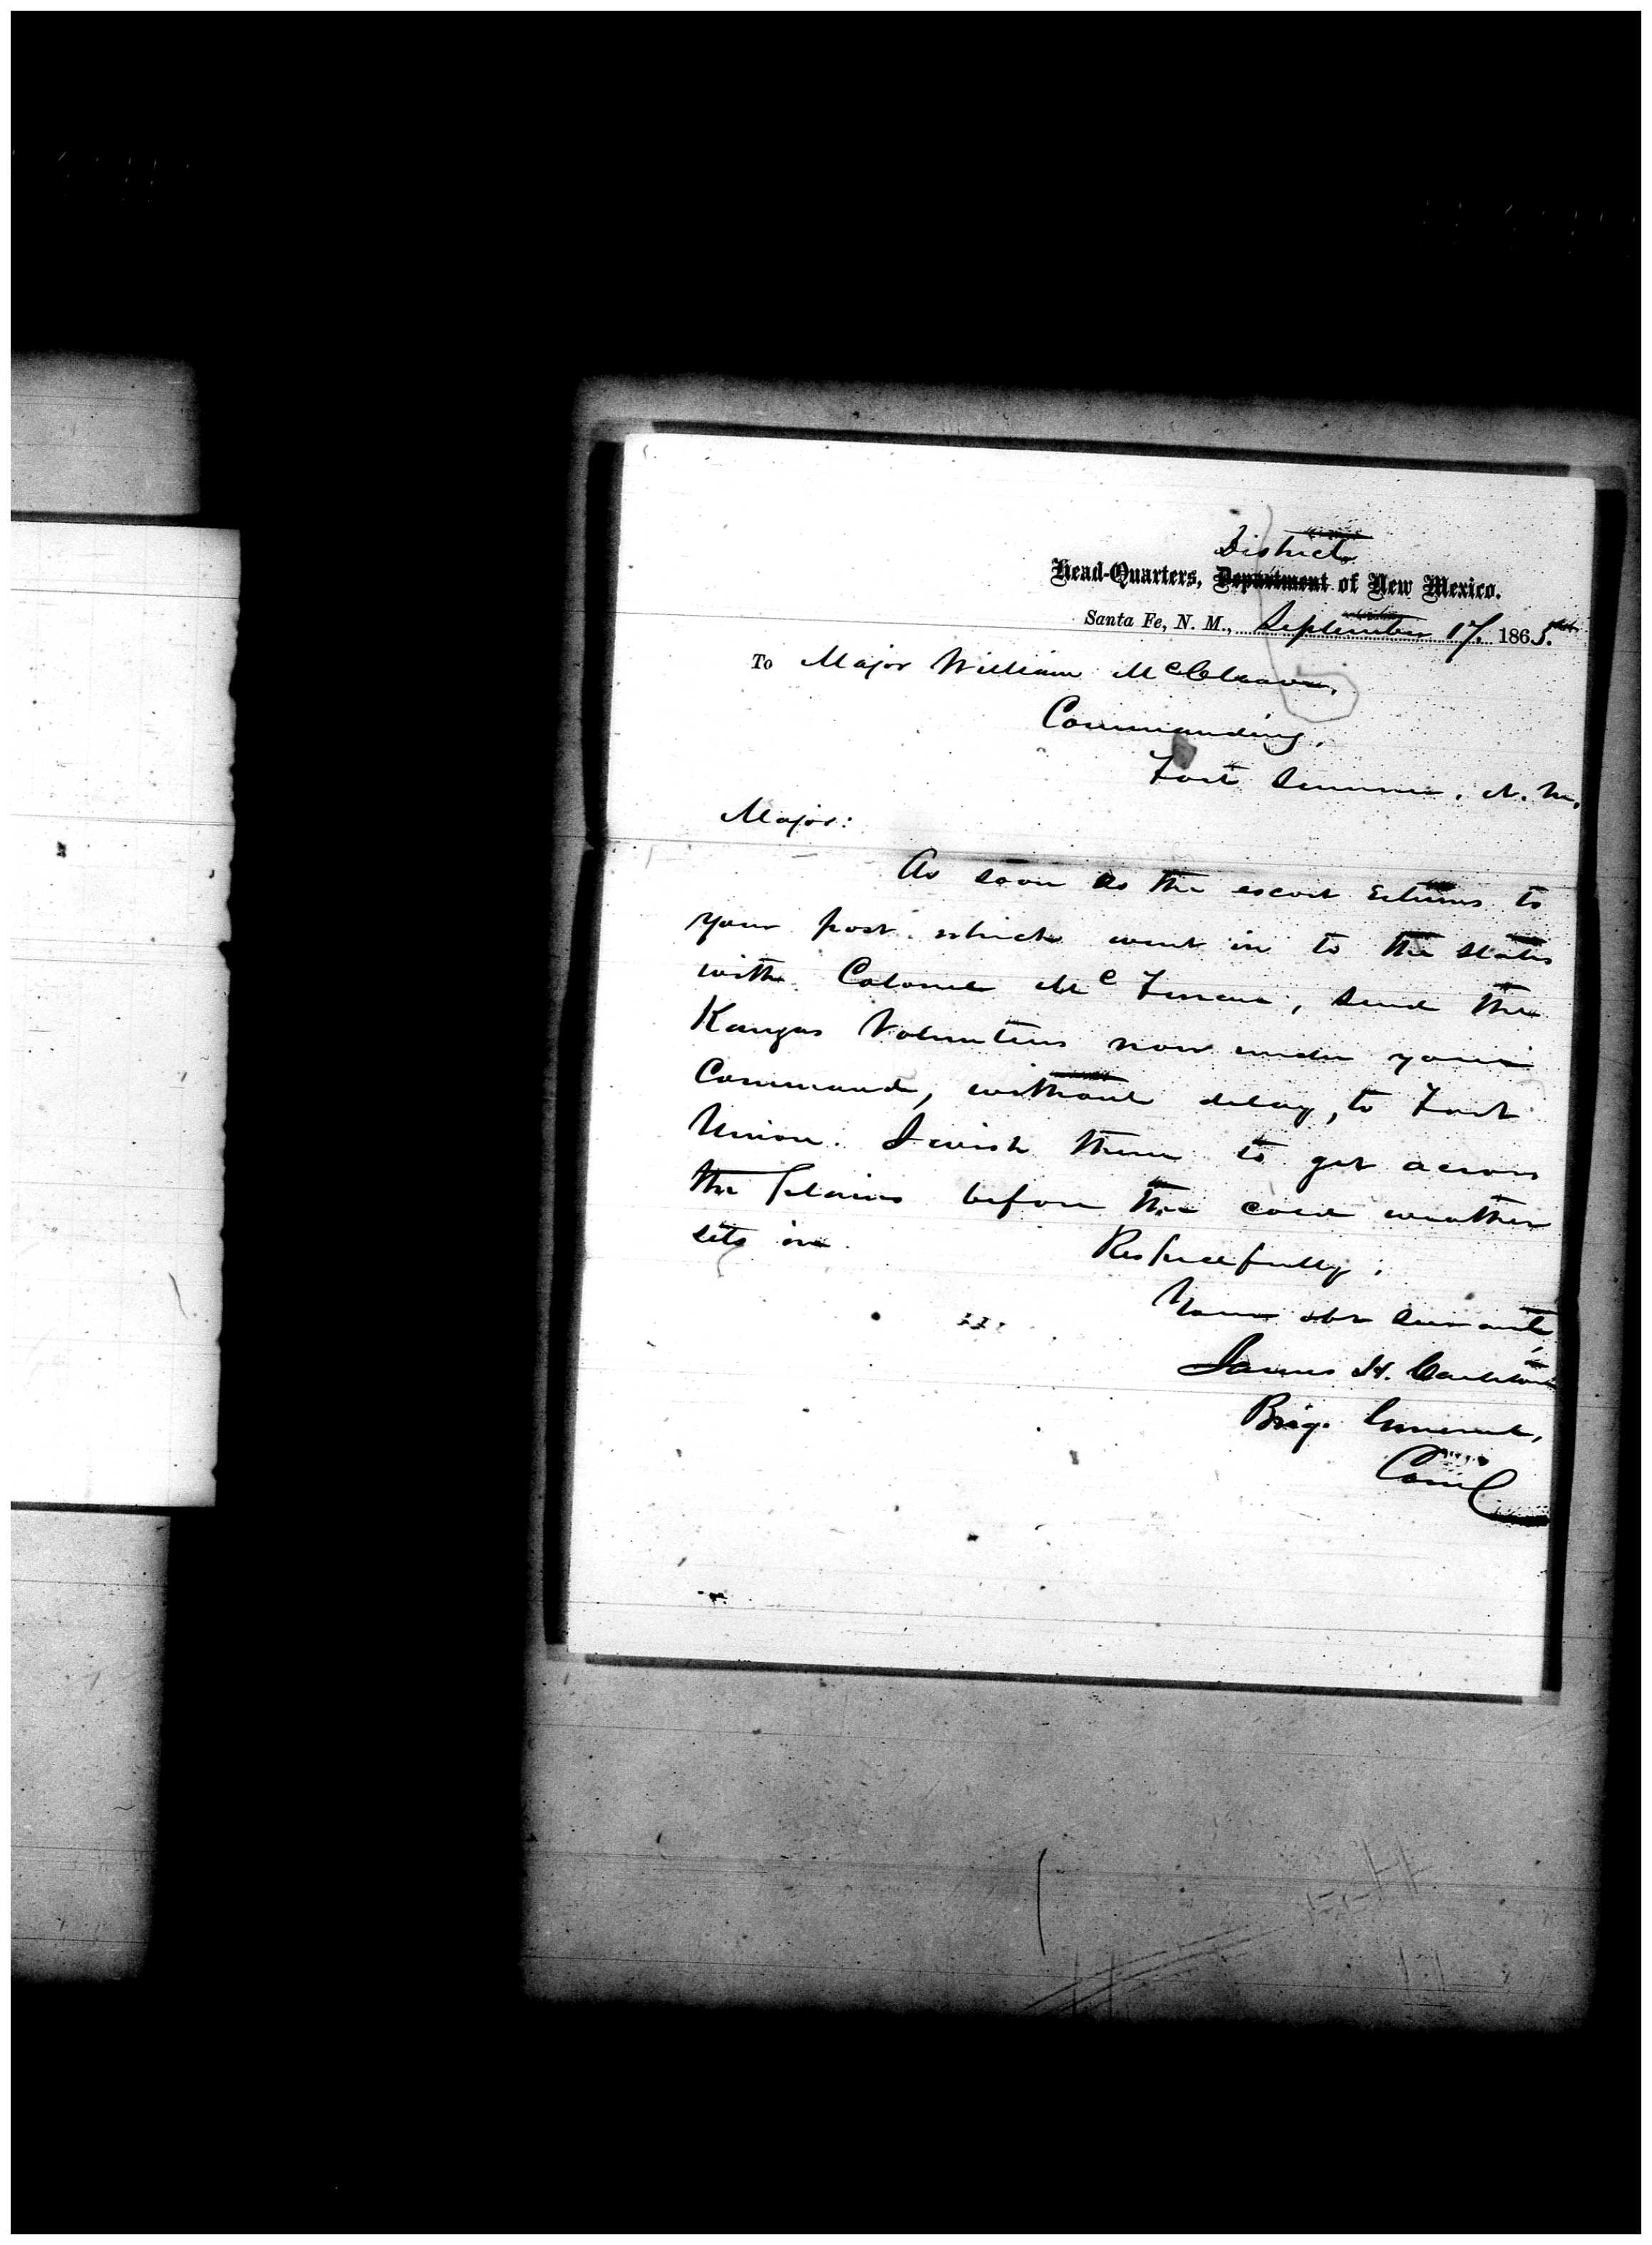 District
Head-Quarters, Department of New Mexico.
Santa Fe, N. M., September 17, 1865.
To Major William McCleave,
Commanding,
Fort Sumner, N. M.
Major:
As soon as the escort returns to
your post which went in to the States
with Colonel McFerran, send the
Kansas Volunteers now under your
command, without delay, to Fort
Union. I wish them to get across
the plains before the cold weather
sets in.
Respectfully,
Your obt servant,
James H. Carleton
Brig. General,
Comd